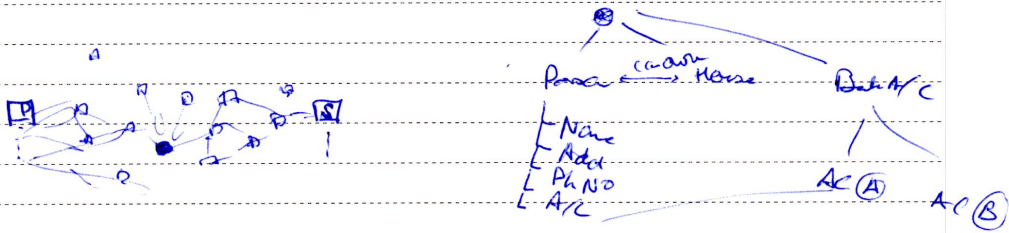 P
S
Person
House
Bank A/C
Name
Add
Ph No
A/C
AC A
AC B